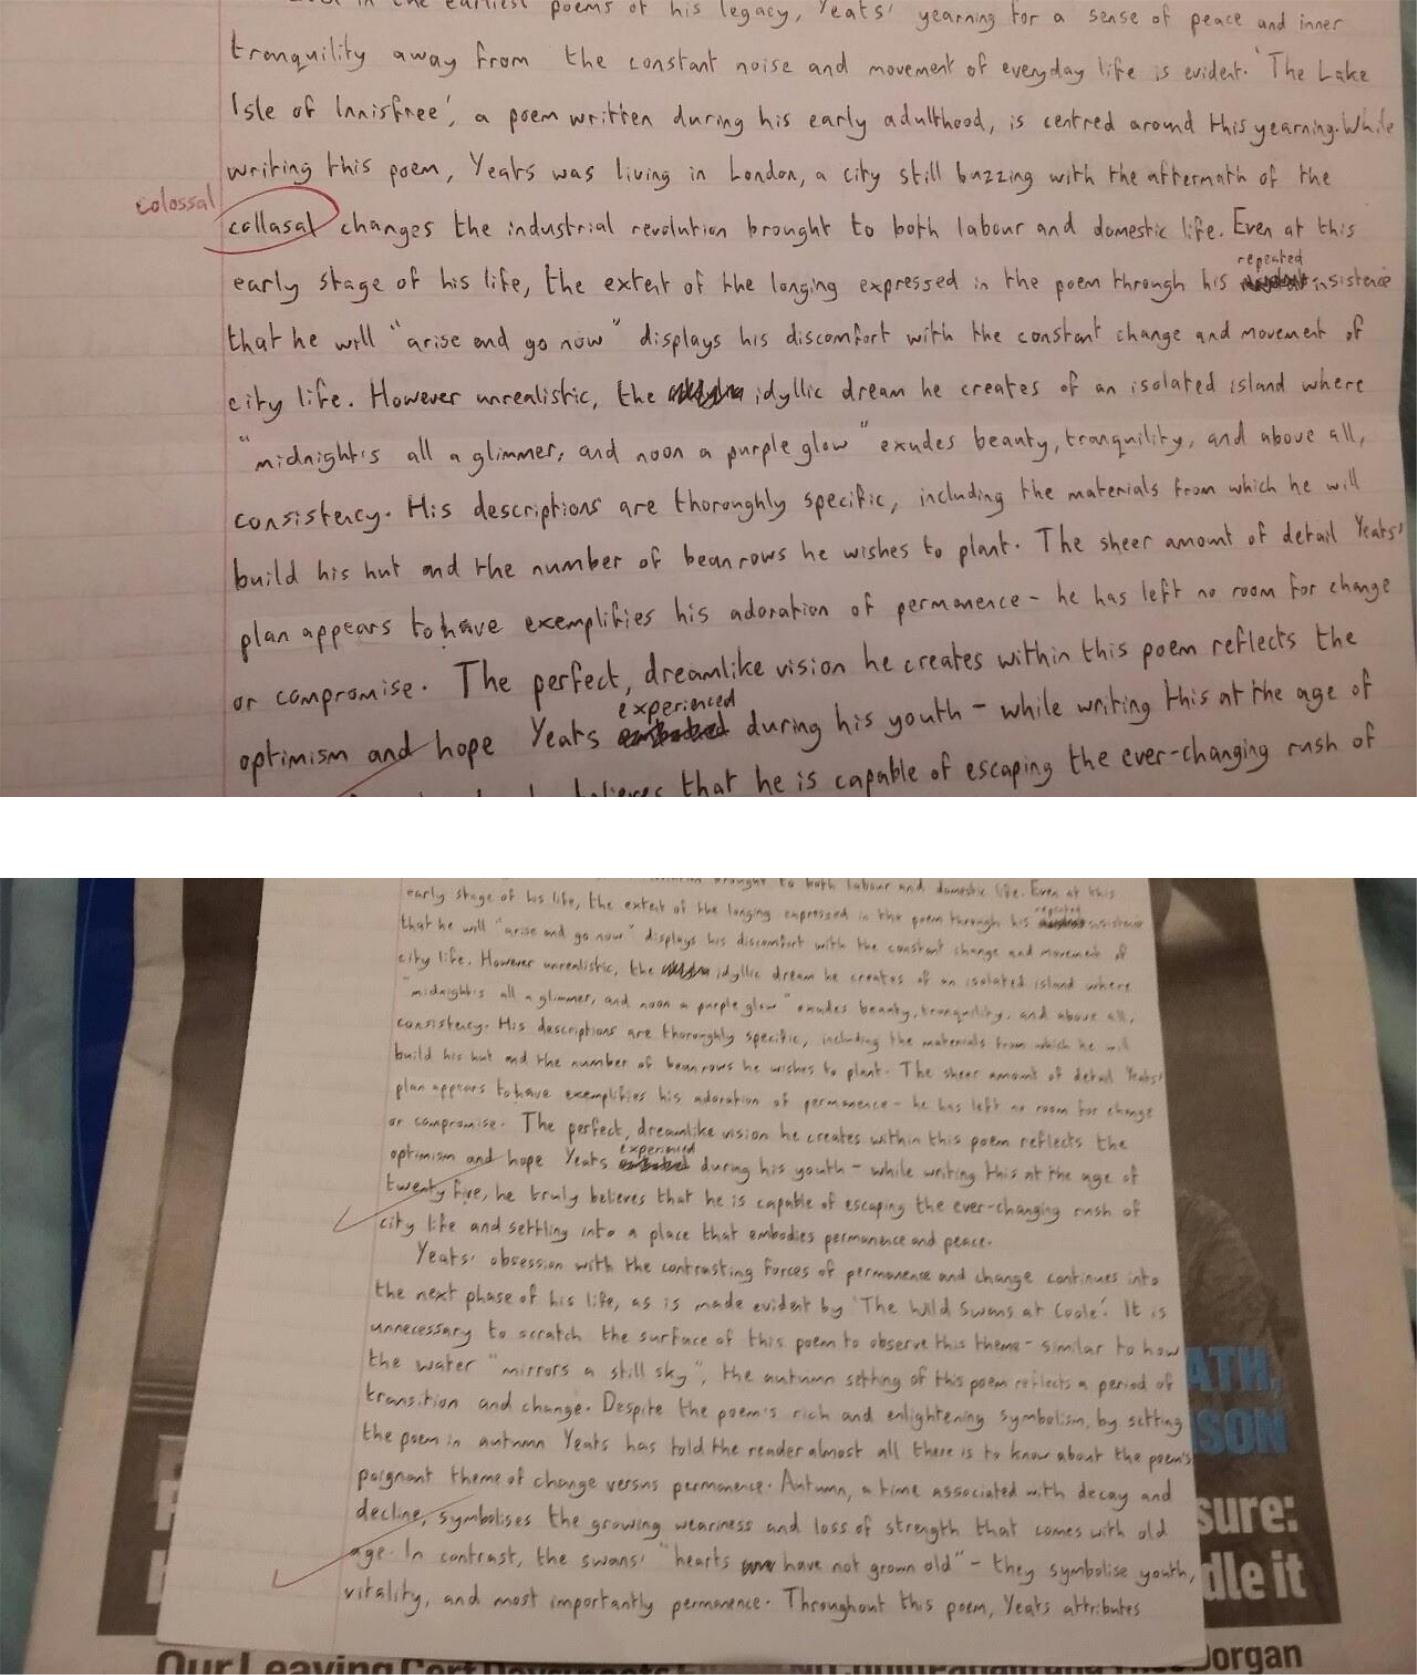 in the earliest poems of his legacy, Yeats' yearning for a sense of peace and inner
tranquility away from the constant noise and movement of everyday life is evident. 'The Lake
Isle of Innisfree', a poem written during his early adulthood, is centred around this yearning. While
writing this poem, Yeats was living in London, a city still buzzing with the aftermath of the
colossal
collasal changes the industrial revolution brought to both labour and domestic life. Even at this
repeated
early stage of his life, the extent of the longing expressed in the poem through his insistence
that he will "arise and go now" displays his discomfort with the constant change and movement of
city life. However unrealistic, the idyllic dream he creates of an isolated island where
"midnight's all a glimmer, and noon a purple glow" exudes beauty, tranquility, and above all,
consistency. His descriptions are thoroughly specific, including the materials from which he will
build his hut and the number of bean rows he wishes to plant. The sheer amount of detail Yeats'
plan appears to have exemplifies his adoration of permanence - he has left no room for change
or compromise. The perfect, dreamlike vision he creates within this poem reflects the
experienced
optimism and hope Yeats during his youth - while writing this at the age of
believes that he is capable of escaping the ever-changing rush of
brought to both labour and domestic life. Even at this
repeated
early stage of his life, the extent of the longing expressed in the poem through his insistence
that he will "arise and go now" displays his discomfort with the constant change and movement of
city life. However unrealistic, the idyllic dream he creates of an isolated island where
"midnight's all a glimmer, and noon a purple glow" exudes beauty, tranquility, and above all,
consistency. His descriptions are thoroughly specific, including the materials from which he will
build his hut and the number of bean rows he wishes to plant. The sheer amount of detail Yeats'
plan appears to have exemplifies his adoration of permanence - he has left no room for change
or compromise. The perfect, dreamlike vision he creates within this poem reflects the
experienced
optimism and hope Yeats during his youth - while writing this at the age of
twenty five, he truly believes that he is capable of escaping the ever-changing rush of
city life and settling into a place that embodies permanence and peace.
Yeats' obsession with the contrasting forces of permanence and change continues into
the next phase of his life, as is made evident by 'The Wild Swans at Coole'. It is
unnecessary to scratch the surface of this poem to observe this theme - similar to how
the water "mirrors a still sky", the autumn setting of this poem reflects a period of
transition and change. Despite the poem's rich and enlightening symbolism, by setting
the poem in autumn Yeats has told the reader almost all there is to know about the poem's
poignant theme of change versus permanence. Autumn, a time associated with decay and
decline, symbolises the growing weariness and loss of strength that comes with old
age. In contrast, the swans' "hearts have not grown old" - they symbolise youth,
vitality, and most importantly permanence. Throughout this poem, Yeats attributes
ATH,
SON
sure:
dle it
Our Leaving Cert
organ